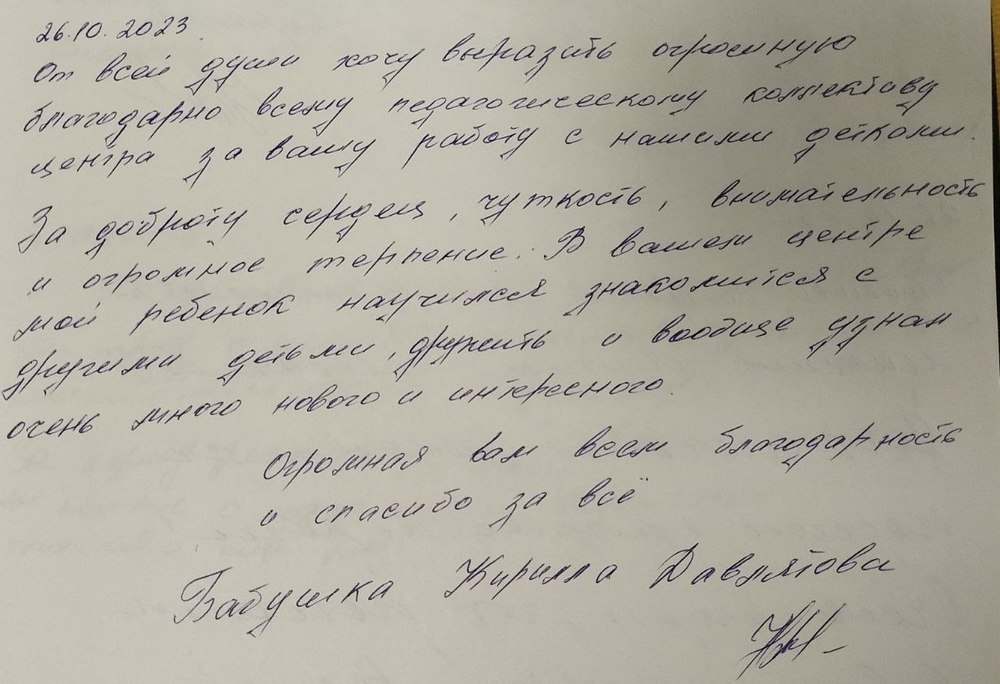 26.10.2023.
От всей души хочу выразить огромную
благодарно всему педагогическому коллективу
центра за вашу работу с нашими детками.
За доброту сердец, чуткость, внимательность
и огромное терпение. В вашем центре
мой ребенок научился знакомится с
другими детьми, дружить и вообще узнал
очень много нового и интересного.
Огромная вам всем благодарность
и спасибо за всё
Бабушка Кирилла Давлятова